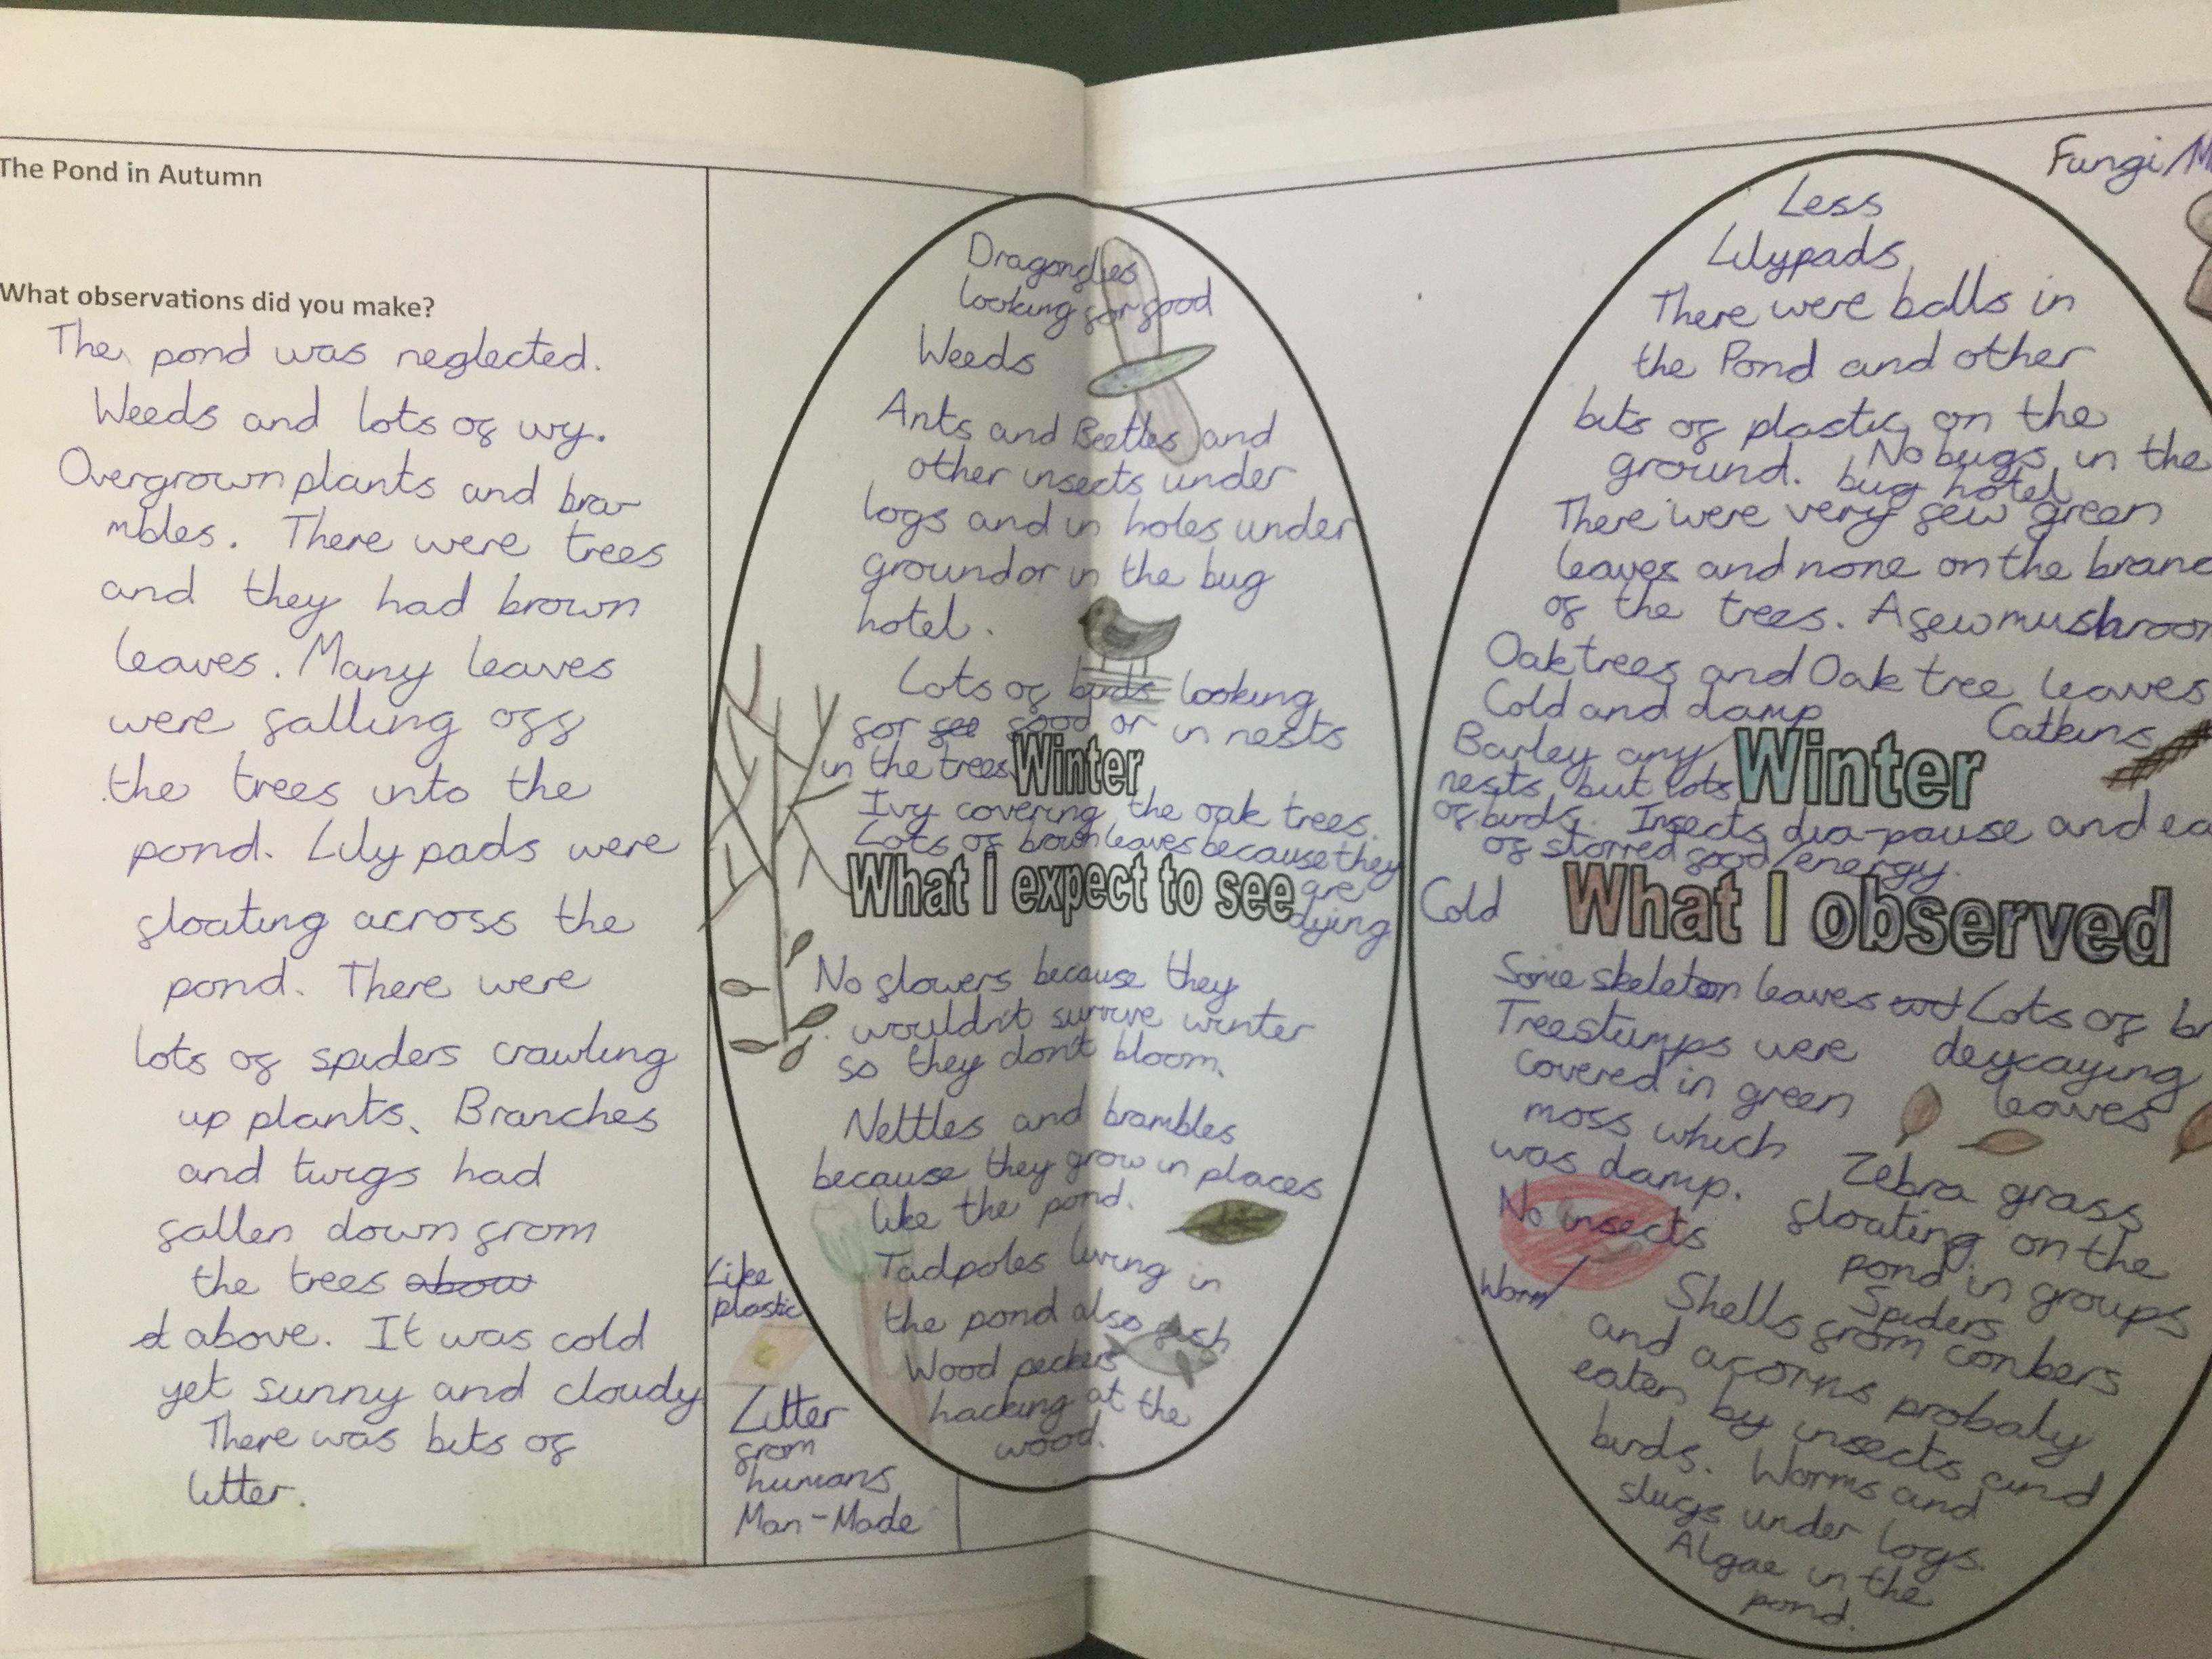 The Pond in Autumn
What observations did you make?
The pond was neglected.
Weeds and lots of ivy.
Overgrown plants and bra-
mbles. There were trees
and they had brown
leaves. Many leaves
were falling off
the trees into the
pond. Lily pads were
floating across the
pond. There were
lots of spiders crawling
up plants. Branches
and twigs had
fallen down from
the trees abow
d above. It was cold
yet sunny and cloudy
There was bits of
litter.
Like
plastic
Litter
from
humans
Man-Made
Dragonflies
looking for food
Weeds
Ants and Beetles and
other insects under
logs and in holes under
ground or in the bug
hotel.
Lots of birds looking
for food or in nests
in the trees.
Winter
Ivy covering the oak trees.
Lots of brown leaves because they
are
dying
What I expect to see
No flowers because they
wouldn't survive winter
so they don't bloom.
Nettles and brambles
because they grow in places
like the pond.
Tadpoles living in
the pond also fish
Wood peckers
hacking at the
wood.
Fungi
Less
Lilypads
There were balls in
the Pond and other
bits of plastic on the
ground. No bugs in the
bug hotel
There were very few green
leaves and none on the
of the trees. A few
Oak trees and Oak tree leaves
Cold and damp
Catkins
Barley any
nests but lots
of birds. Insects dia-pause and
of storred food/energy.
Winter
Cold
What I observed
Some skeleton leaves Lots of
deycaying
leaves
Treestumps were
covered in green
moss which
was damp.
No insects
Worm
Zebra grass
floating on the
pond in groups
Spiders
Shells from conkers
and acorns probaly
eaten by insects and
birds. Worms and
slugs under logs.
Algae in the
pond.